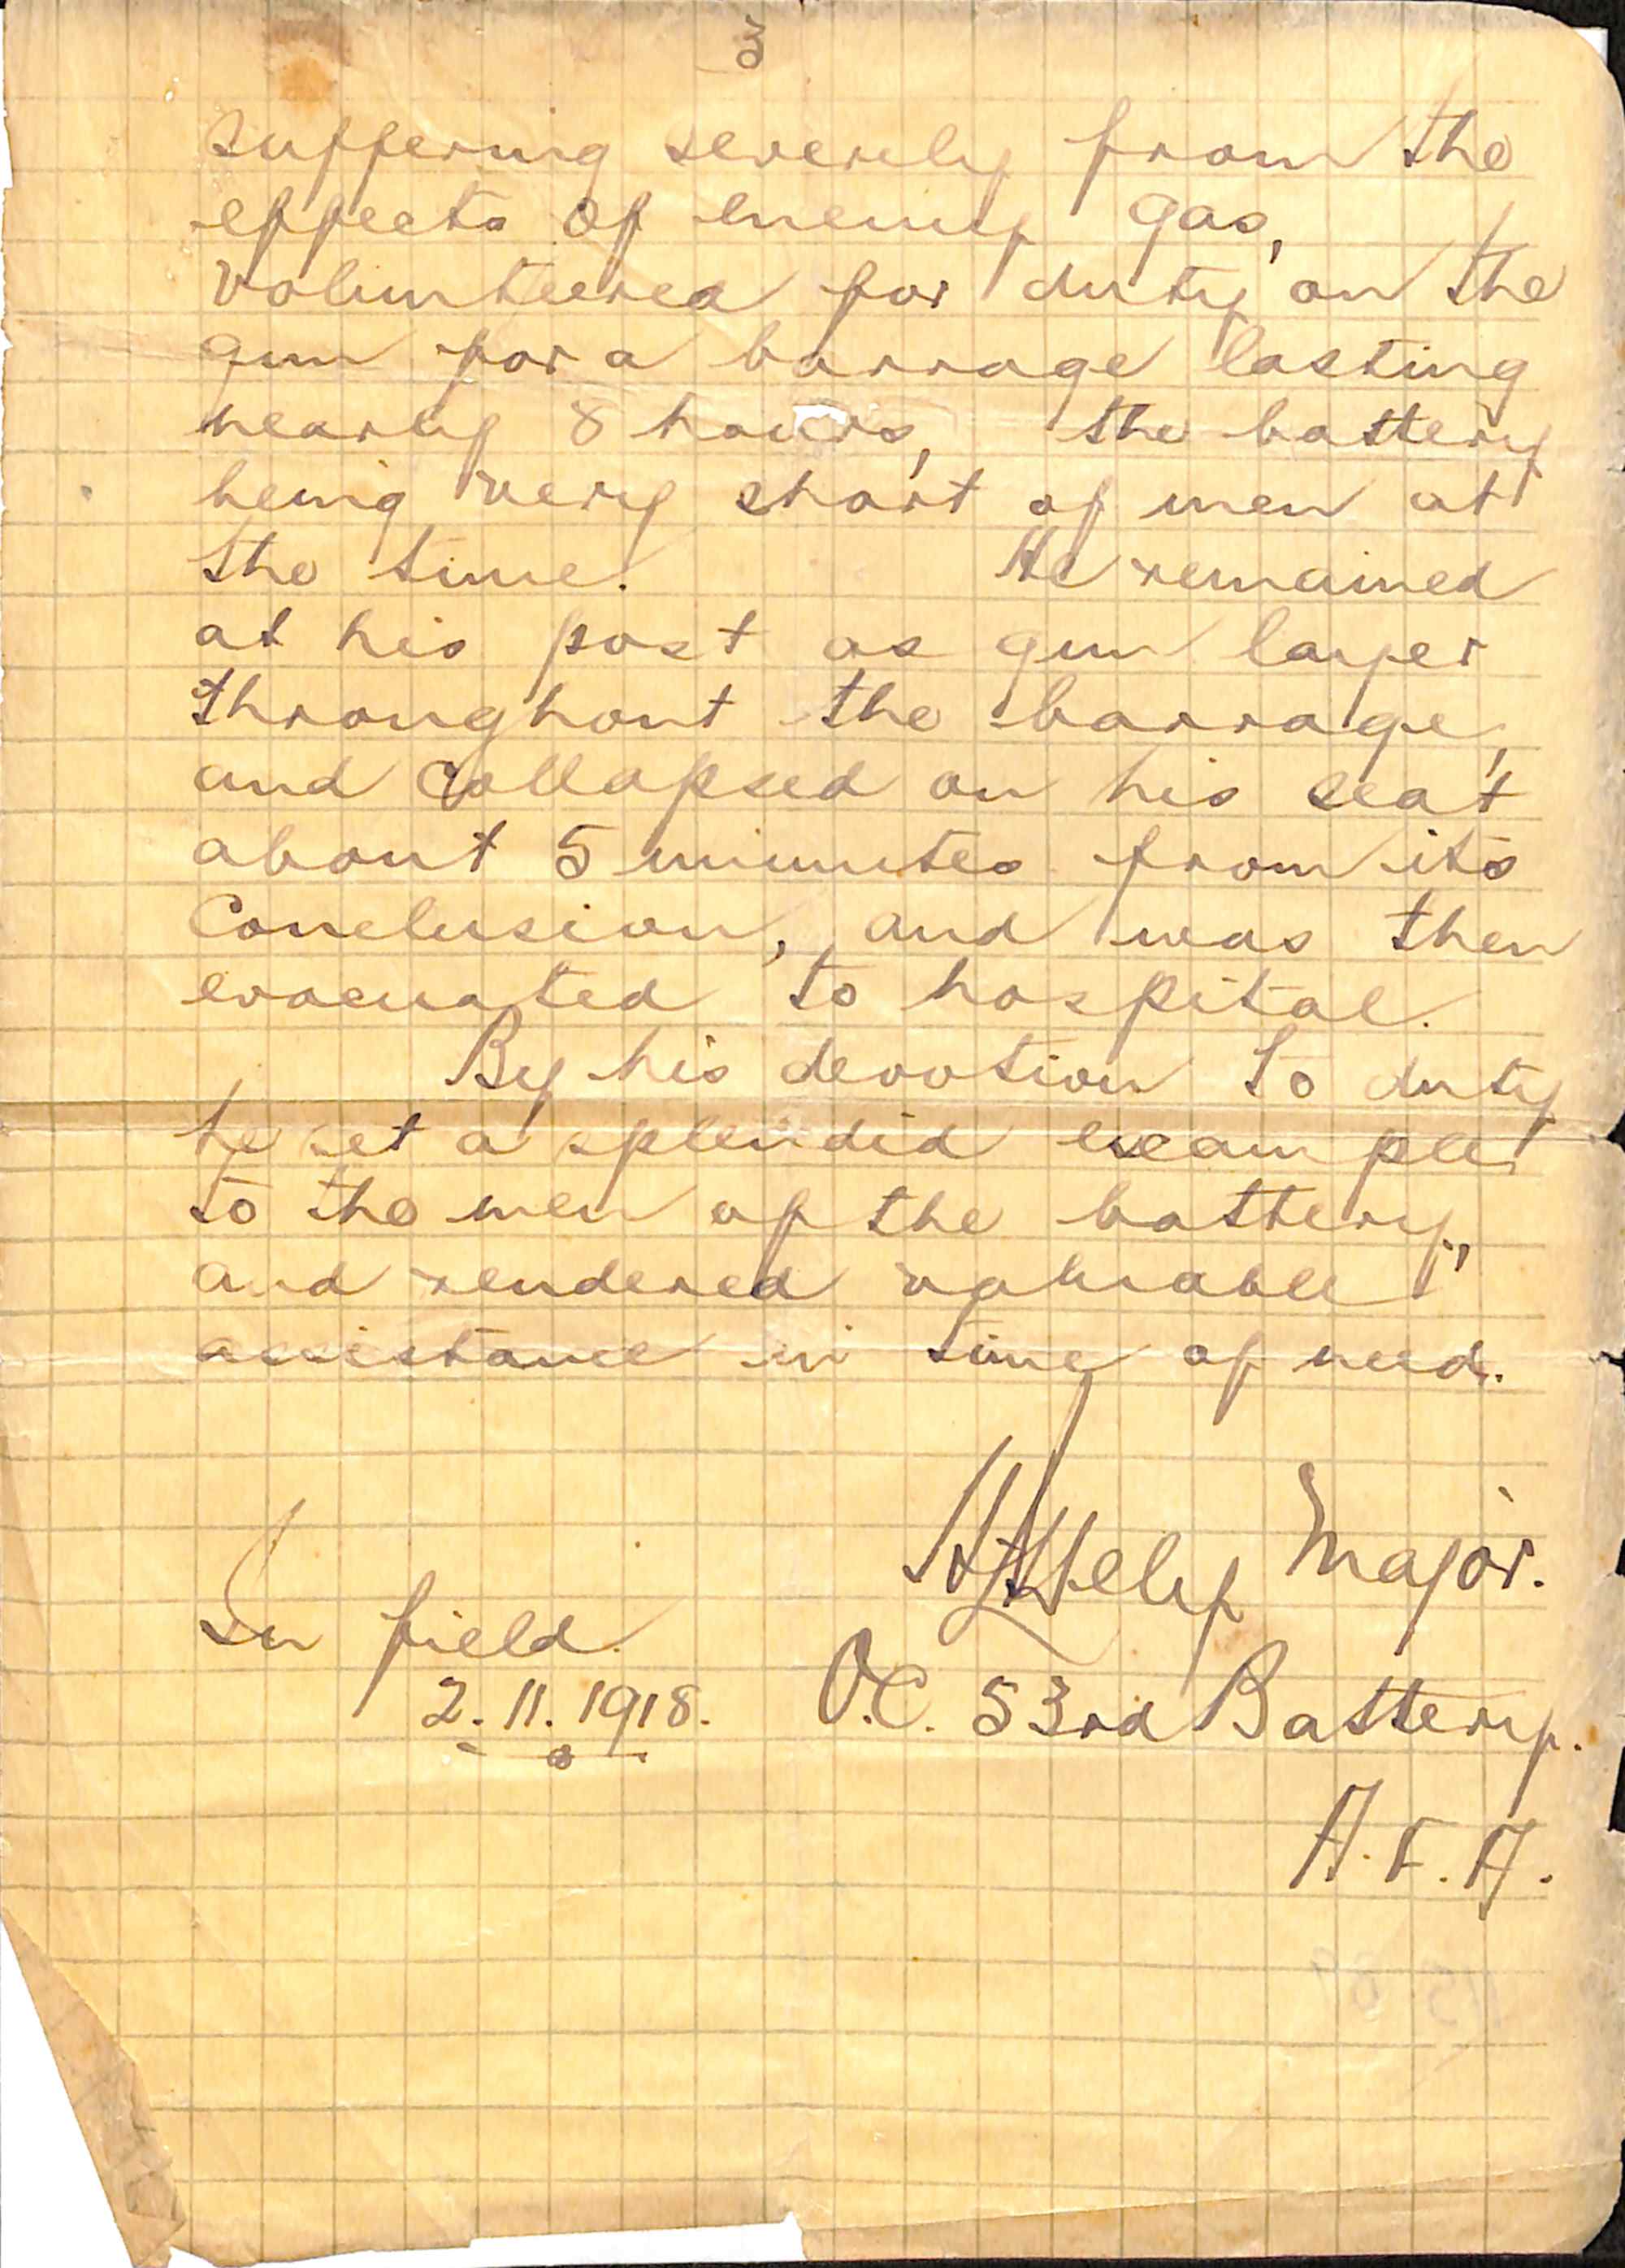 3
suffering severely from the
effects of enemy gas,
volunteered for duty on the
gun for a barrage lasting
nearly 8 hours, the battery
being very short of men at
the time. He remained
at his post as gun layer
throughout the barrage,
and collapsed on his seat
about 5 minutes from its
conclusion, and was then
evacuated to hospital.
By his devotion to duty
he set a splendid example
to the men of the battery,
and rendered valuable
assistance in time of need.
Major.
In field.
2.11.1918.
O.C. 53rd Battery.
A.F.A.